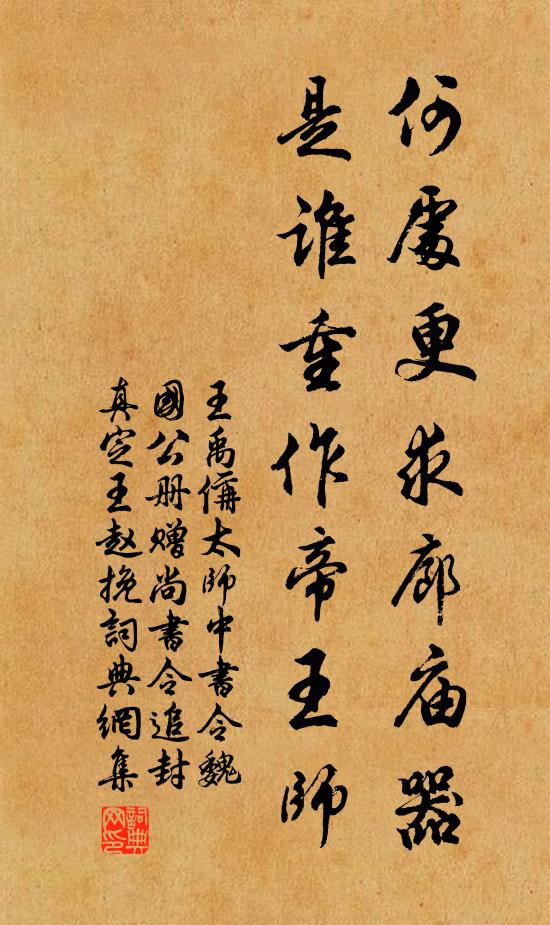 何處更求廊庙器
是誰重作帝王師
王禹偁太师中書令魏
國公册赠尚書令追封
真定王赵挽詞典網集
詞典网印